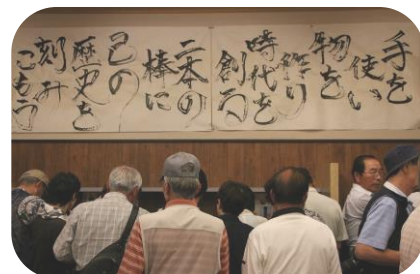 手を
使い
物を
作り
時代を
創る
二本の
棒に
己の
歴史を
刻み
こもう